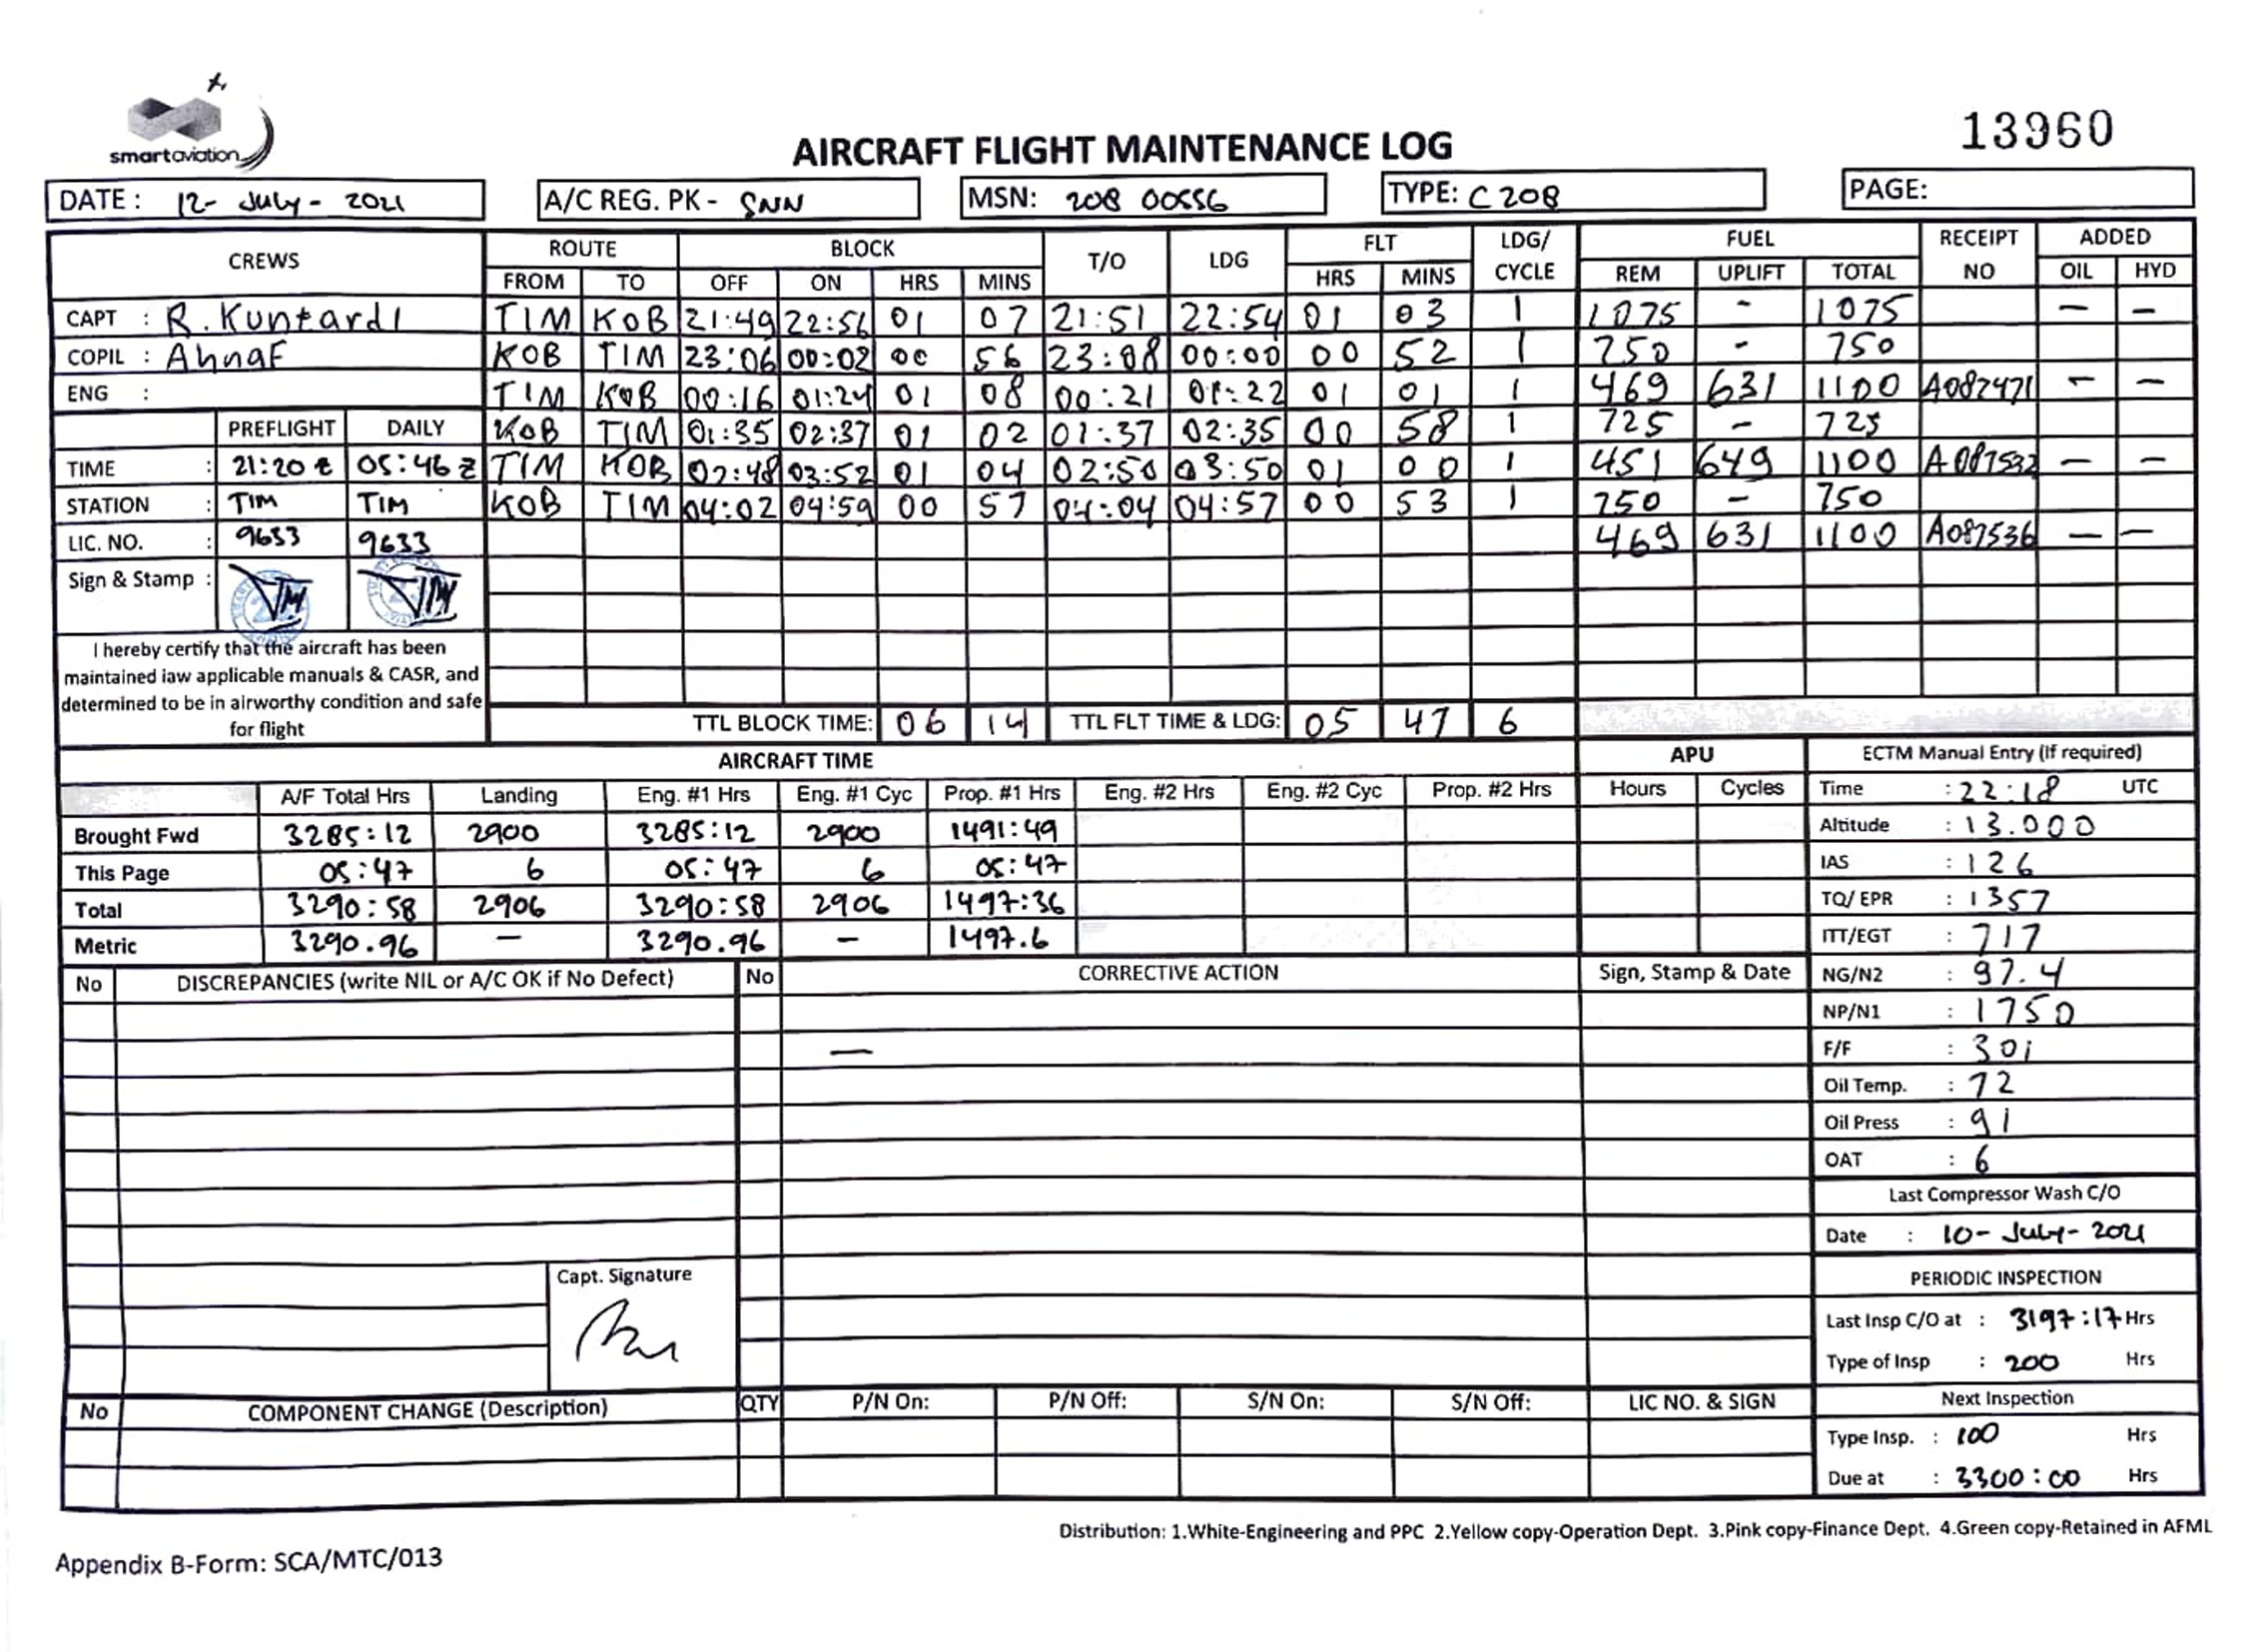 smartaviation
AIRCRAFT FLIGHT MAINTENANCE LOG
13960
DATE : 12- July - 2021
A/C REG. PK - SNN
MSN: 208 00556
TYPE: C 208
PAGE:
CREWS ROUTE BLOCK T/O LDG FLT LDG/ CYCLE FUEL RECEIPT NO ADDED
FROM TO OFF ON HRS MINS HRS MINS REM UPLIFT TOTAL OIL HYD
CAPT : R. Kuntardi TIM KOB 21:49 22:56 01 07 21:51 22:54 01 03 1 1075 - 1075 — —
COPIL : Ahnaf KOB TIM 23:06 00:02 00 56 23:08 00:00 00 52 1 750 - 750
ENG : TIM KOB 00:16 01:24 01 08 00:21 01:22 01 01 1 469 631 1100 A087471 — —
PREFLIGHT DAILY KOB TIM 01:35 02:37 01 02 01:37 02:35 00 58 1 725 - 725
TIME : 21:20 z 05:46 z TIM KOB 02:48 03:52 01 04 02:50 03:50 01 00 1 451 649 1100 A087532 — —
STATION : TIM TIM KOB TIM 04:02 04:59 00 57 04:04 04:57 00 53 1 750 - 750
LIC. NO. : 9633 9633 469 631 1100 A087536 — —
Sign & Stamp :
I hereby certify that the aircraft has been
maintained iaw applicable manuals & CASR, and
determined to be in airworthy condition and safe
for flight
TTL BLOCK TIME: 06 14 TTL FLT TIME & LDG: 05 47 6
AIRCRAFT TIME APU ECTM Manual Entry (If required)
A/F Total Hrs Landing Eng. #1 Hrs Eng. #1 Cyc Prop. #1 Hrs Eng. #2 Hrs Eng. #2 Cyc Prop. #2 Hrs Hours Cycles Time : 22:18 UTC
Brought Fwd 3285:12 2900 3285:12 2900 1491:49 Altitude : 13.000
This Page 05:47 6 05:47 6 05:47 IAS : 126
Total 3290:58 2906 3290:58 2906 1497:36 TQ/ EPR : 1357
Metric 3290.96 — 3290.96 — 1497.6 ITT/EGT : 717
No DISCREPANCIES (write NIL or A/C OK if No Defect) No CORRECTIVE ACTION Sign, Stamp & Date NG/N2 : 97.4
NP/N1 : 1750
— F/F : 301
Oil Temp. : 72
Oil Press : 91
OAT : 6
Last Compressor Wash C/O
Date : 10- July - 2021
Capt. Signature
PERIODIC INSPECTION
Last Insp C/O at : 3197:17 Hrs
Type of Insp : 200 Hrs
No COMPONENT CHANGE (Description) QTY P/N On: P/N Off: S/N On: S/N Off: LIC NO. & SIGN Next Inspection
Type Insp. : 100 Hrs
Due at : 3300:00 Hrs
Distribution: 1.White-Engineering and PPC 2.Yellow copy-Operation Dept. 3.Pink copy-Finance Dept. 4.Green copy-Retained in AFML
Appendix B-Form: SCA/MTC/013